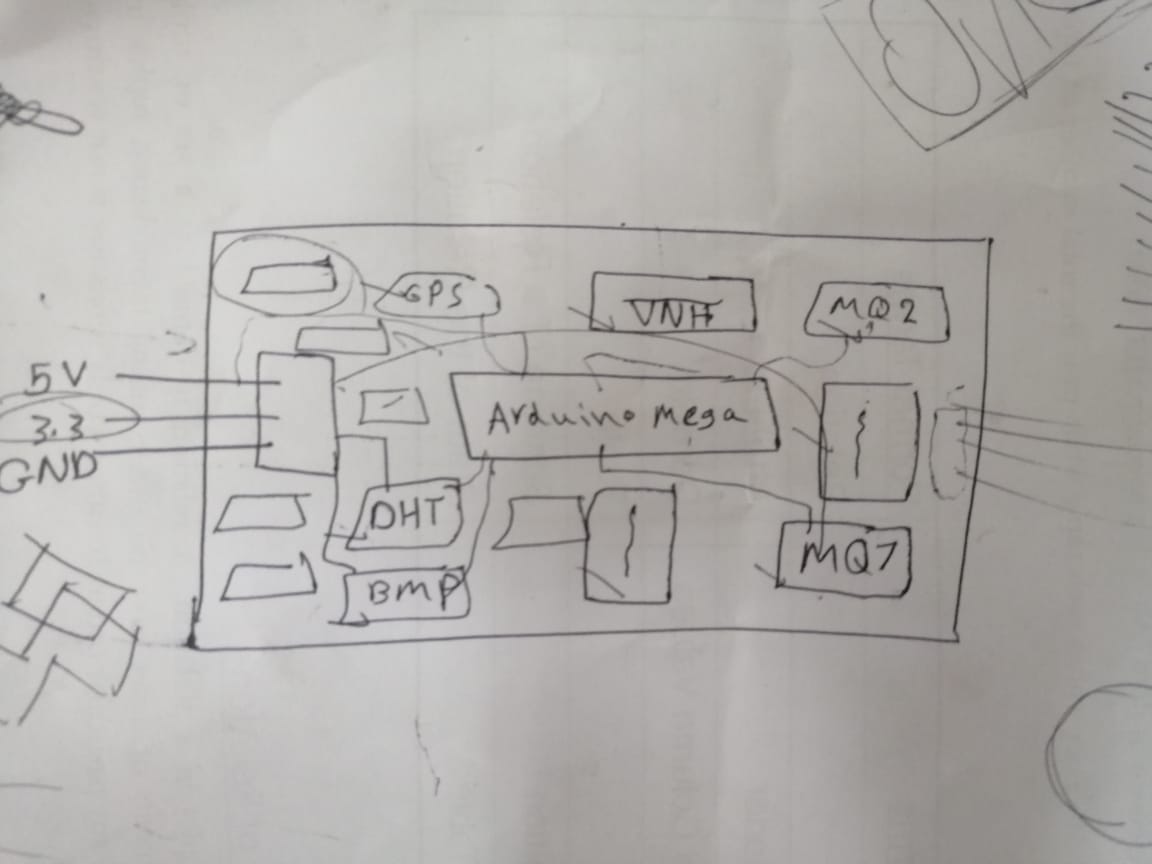 GPS
VNH
MQ2
5V
3.3
GND
Arduino mega
DHT
BMP
MQ7